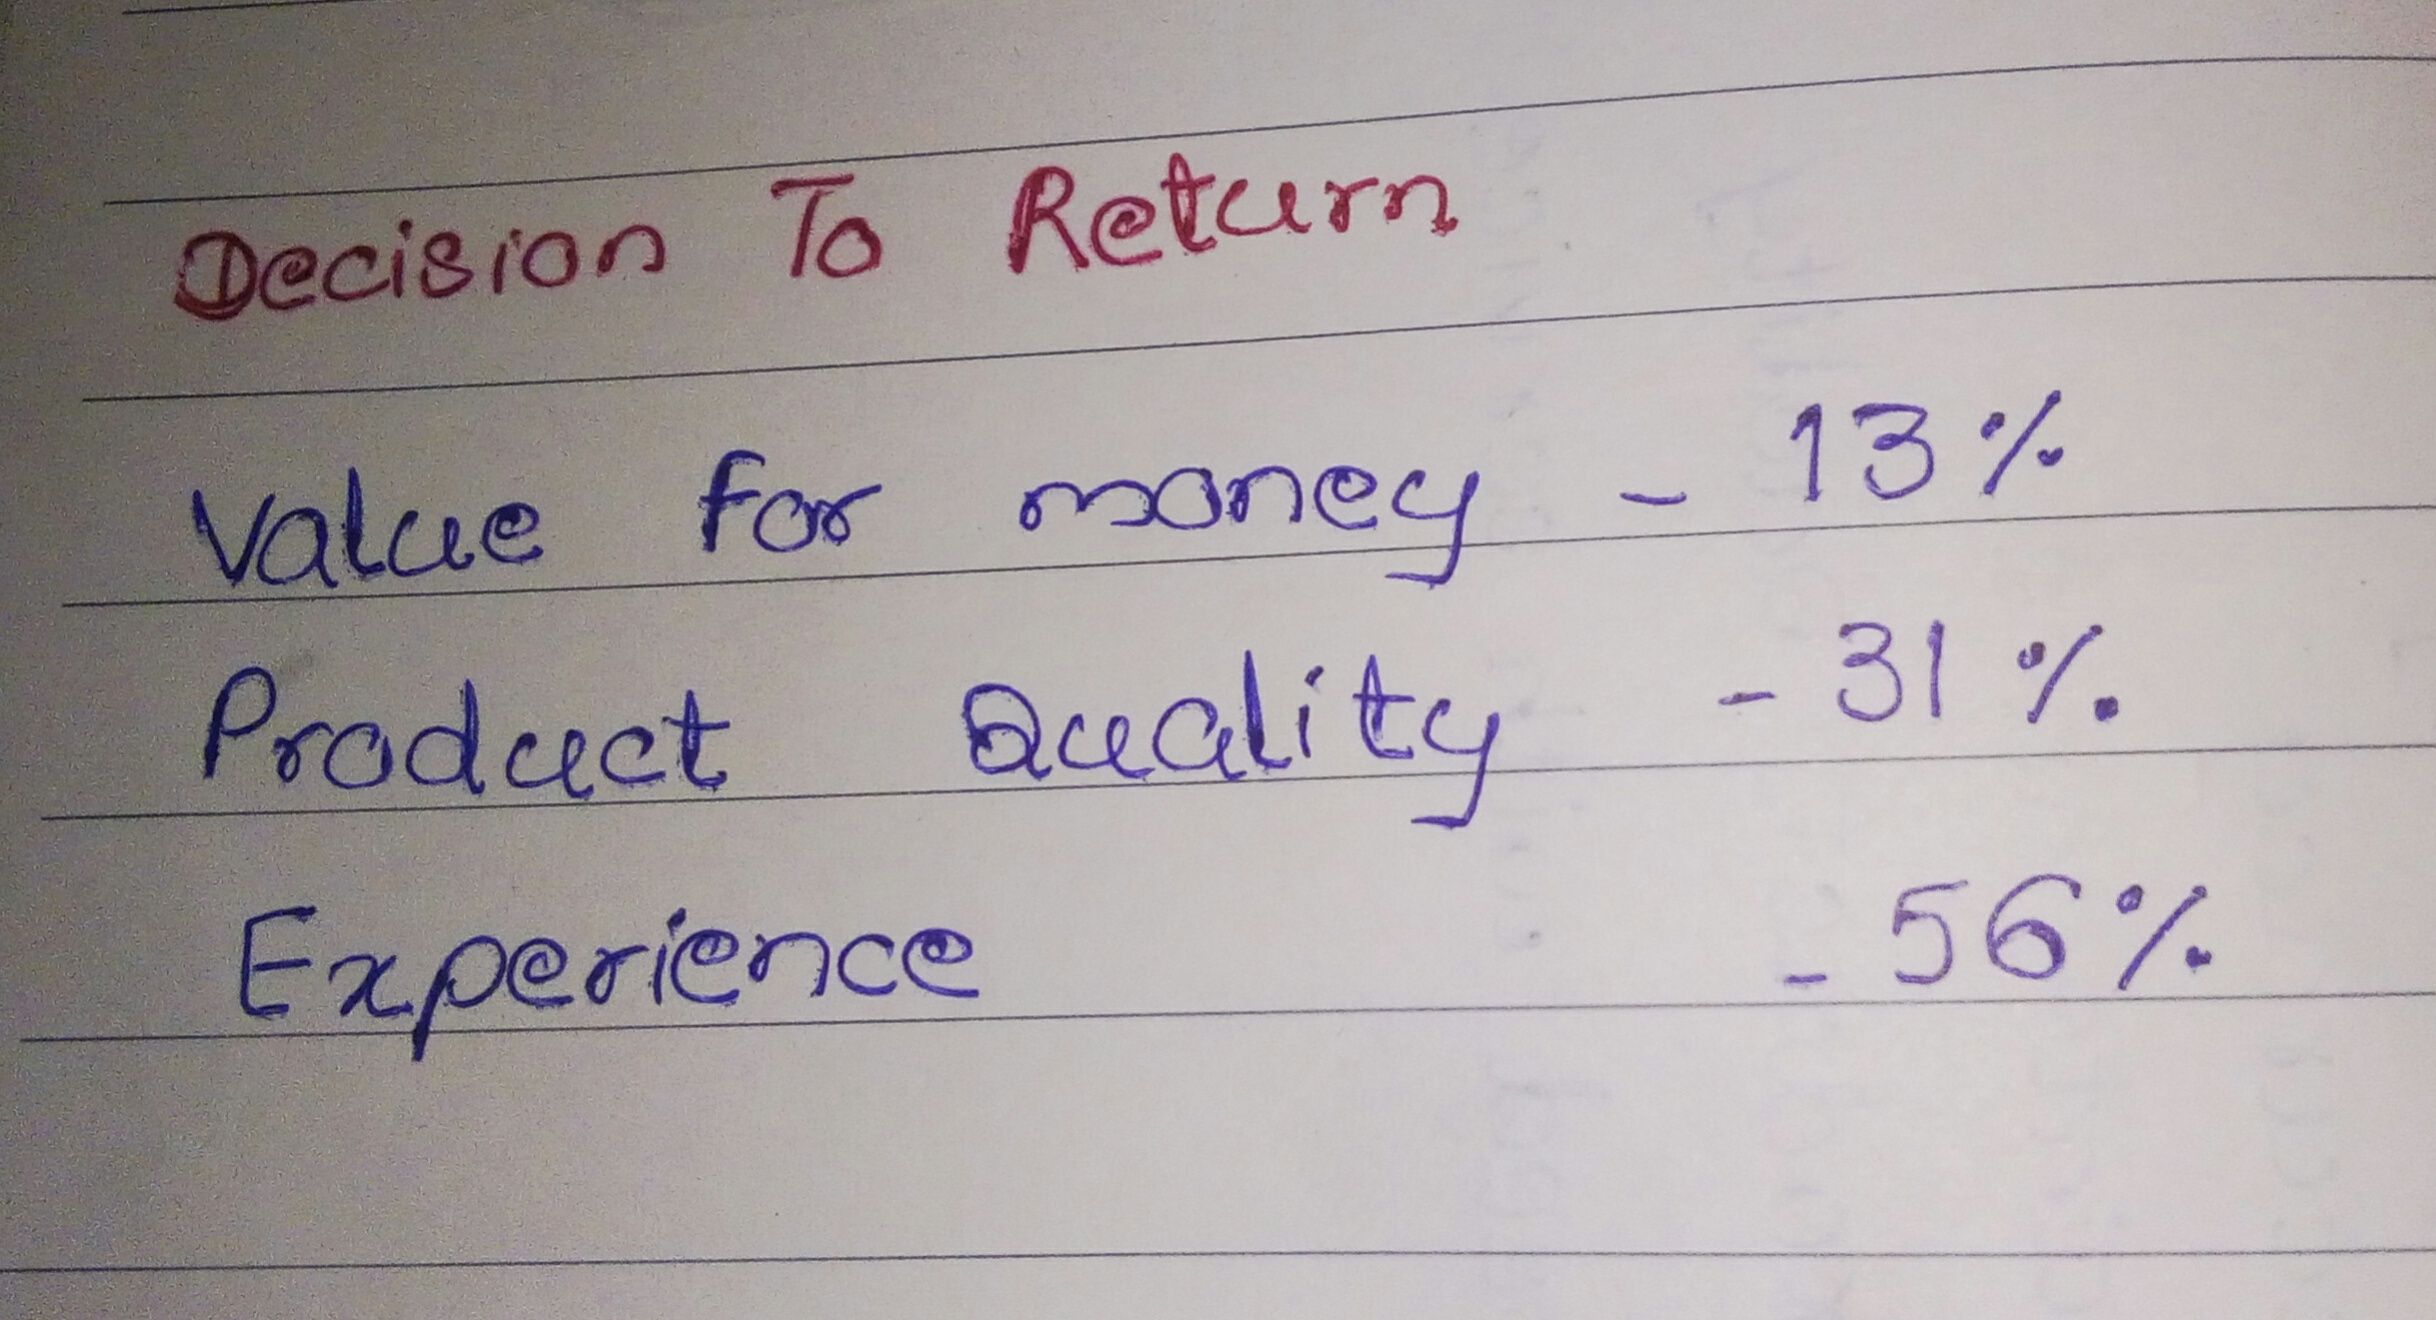 Decision To Return
Value for money - 13%
Product Quality - 31%
Experience - 56%